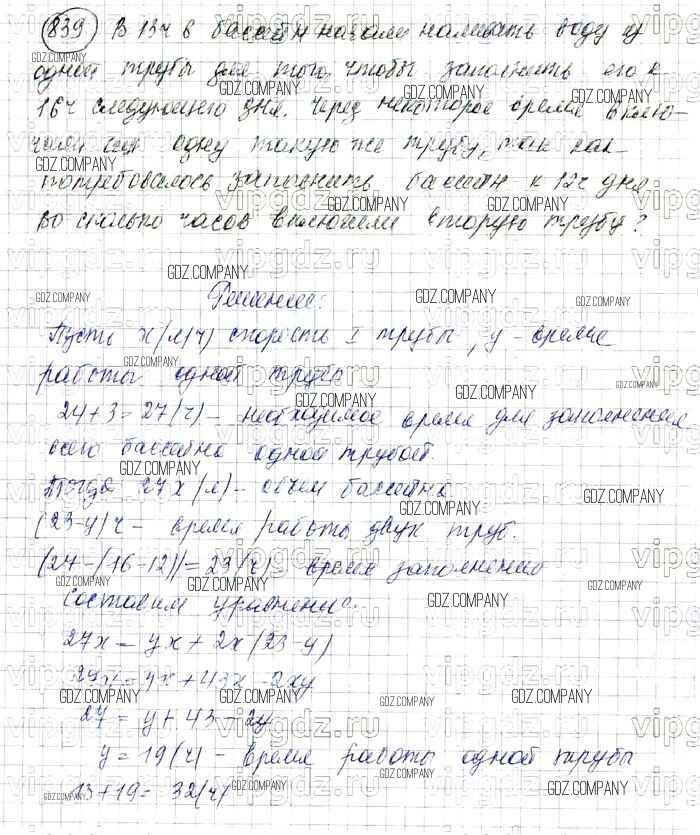 839 В 13 ч в бассейн начали наливать воду из
одной трубы для того, чтобы заполнить его к
16 ч следующего дня. Через некоторое время вклю-
чили ещё одну такую же трубу, так как
потребовалось заполнить бассейн к 12 ч дня
Во сколько часов включили вторую трубу?
Решение:
Пусть x (л/ч) скорость I трубы, y - время
работы одной трубы
24 + 3 = 27 (ч) - необходимое время для заполнения
всего бассейна одной трубой.
Тогда 27x (л) - объём бассейна
(23-y) ч - время работы двух труб.
(27-(16-12)) = 23 (ч) время заполнения
Составим уравнение.
27x = yx + 2x (23-y)
27x = yx + 43x - 2xy
27 = y + 43 - 2y
y = 19 (ч) - время работы одной трубы
13 + 19 = 32 (ч)
GDZ.COMPANY
vipgdz.ru